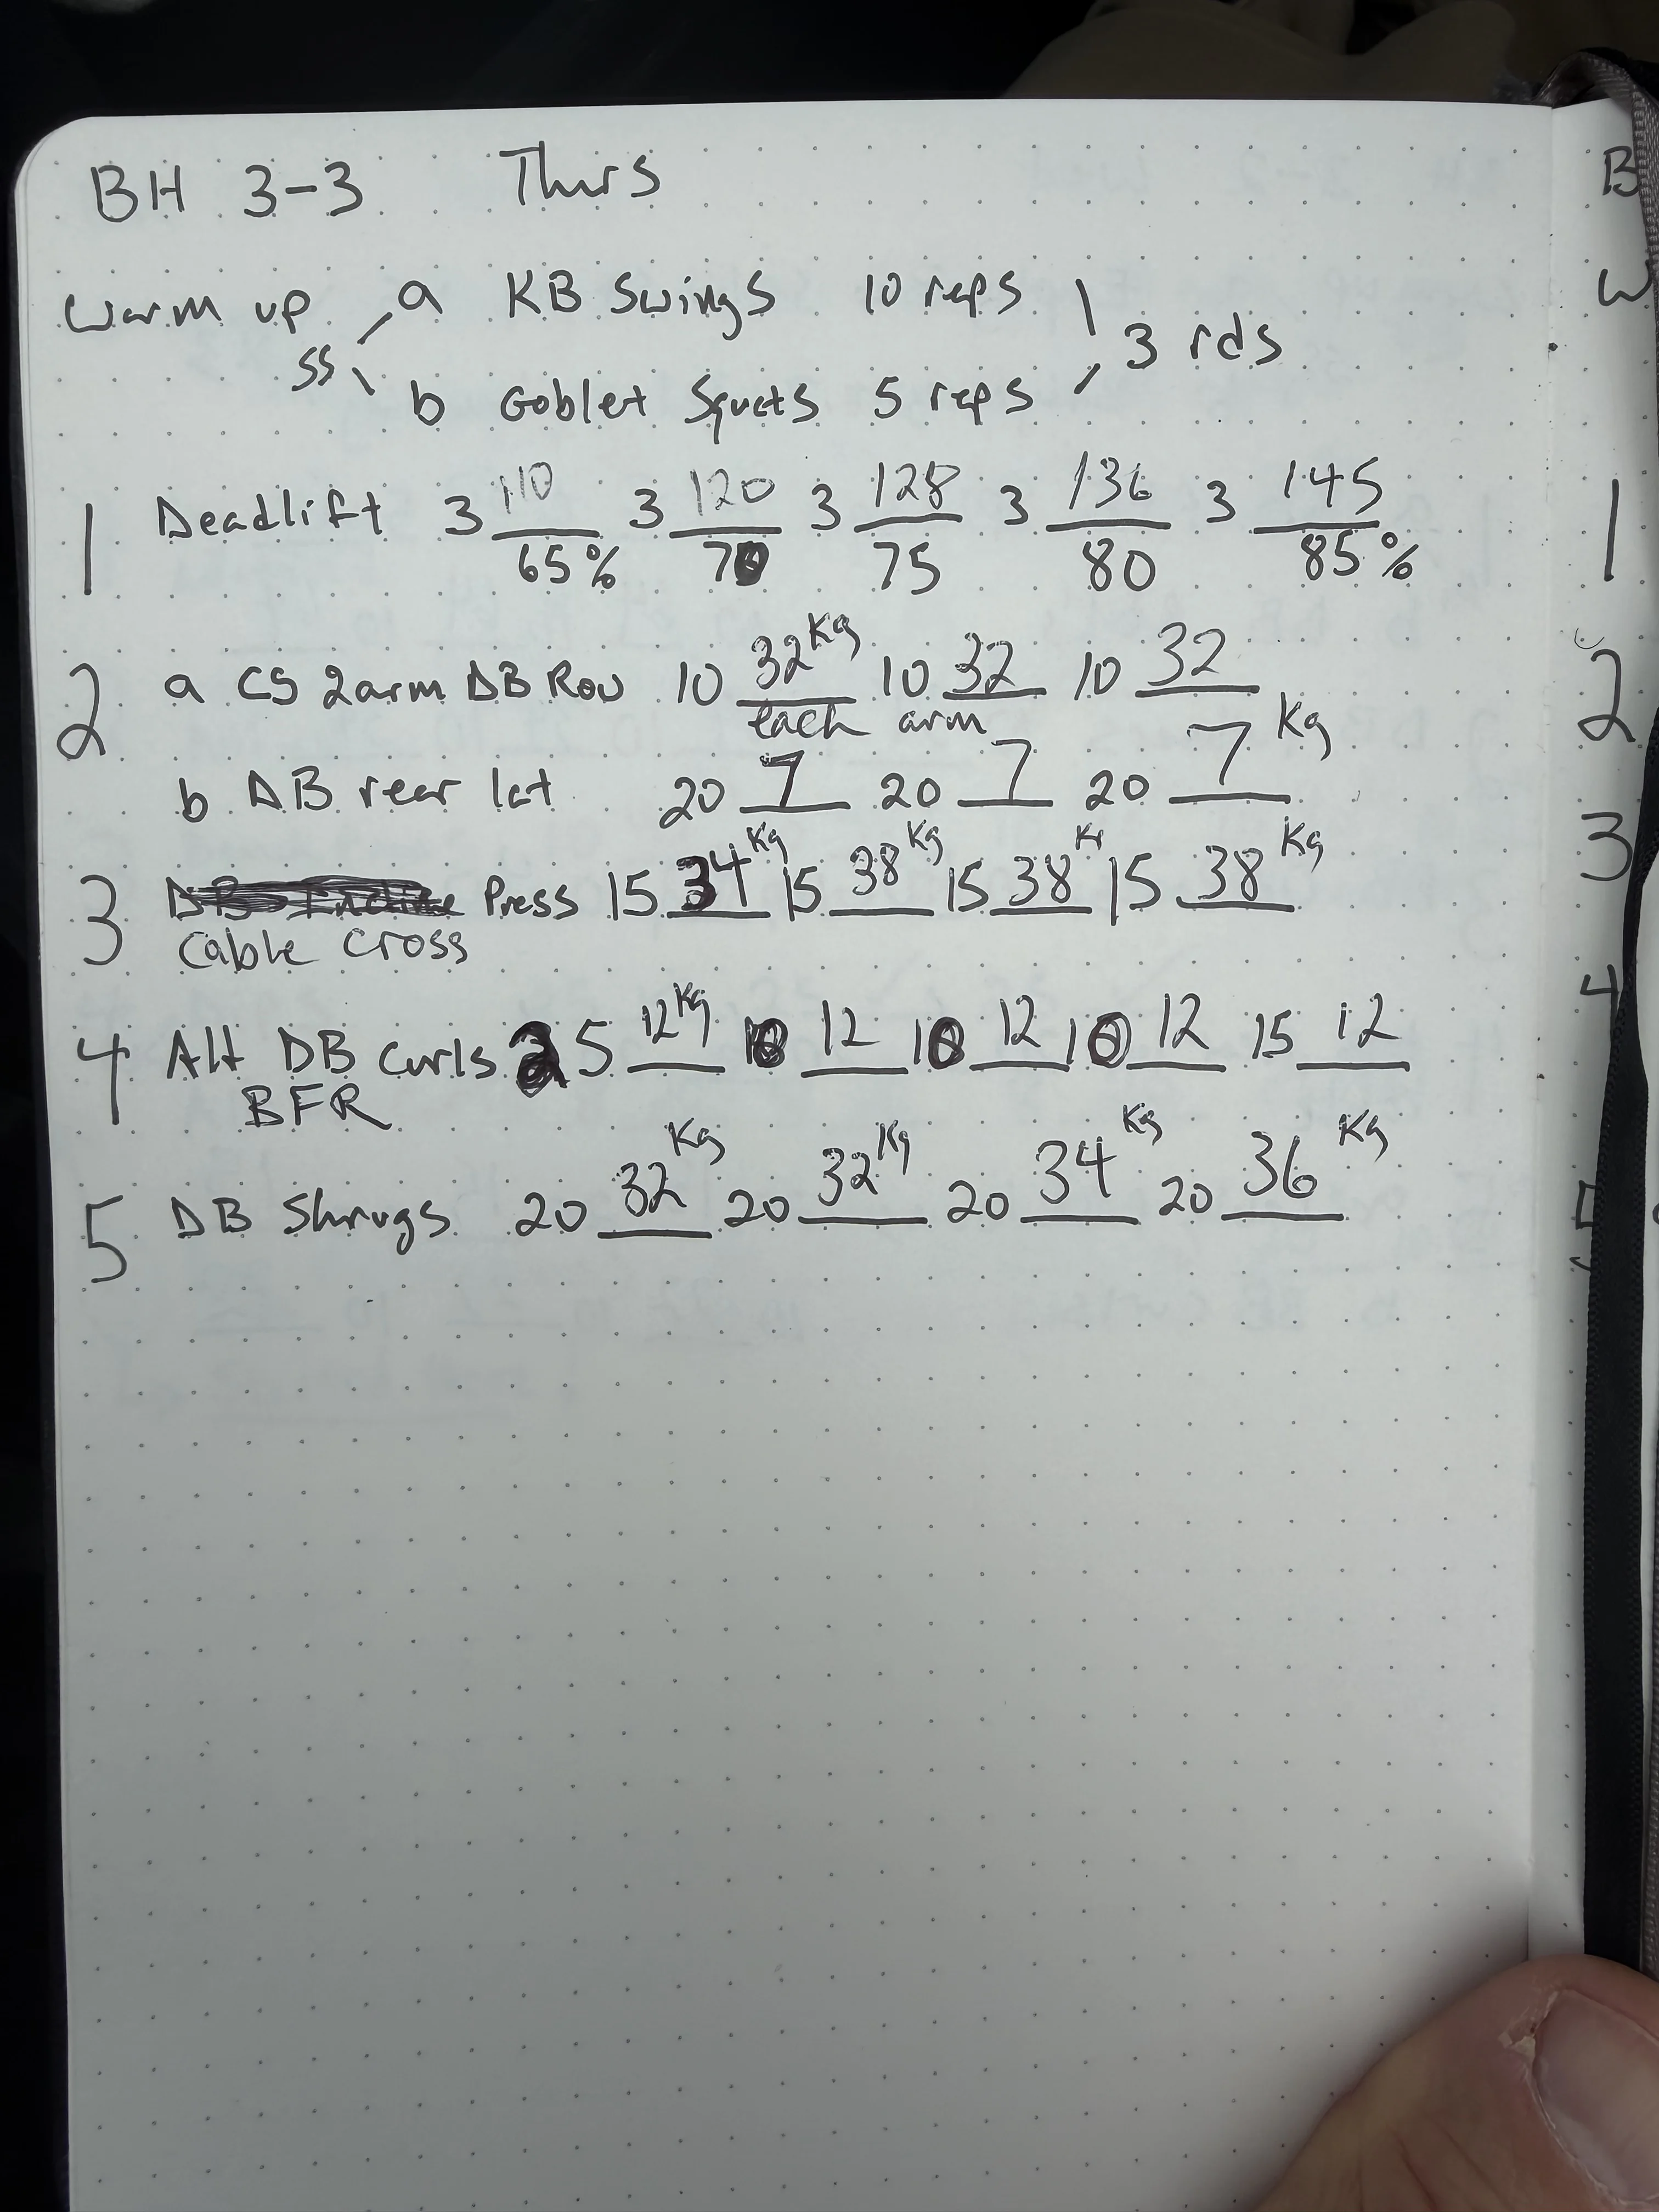 BH 3-3 Thurs
Warm up a KB Swings 10 reps
SS 3 rds
b Goblet Squats 5 reps
1 Deadlift 3 110 3 120 3 128 3 136 3 145
65% 70 75 80 85%
2 a CS 2arm DB Row 10 32Kg 10 32 10 32
each arm
b DB rear lat 20 7 20 7 20 7 Kg
3 Press 15 34Kg 15 38Kg 15 38K 15 38Kg
Cable cross
4 Alt DB Curls 5 12Kg 10 12 10 12 10 12 15 12
BFR
5 DB Shrugs 20 32Kg 20 32Kg 20 34Kg 20 36Kg
B
W
1
2
3
4
5